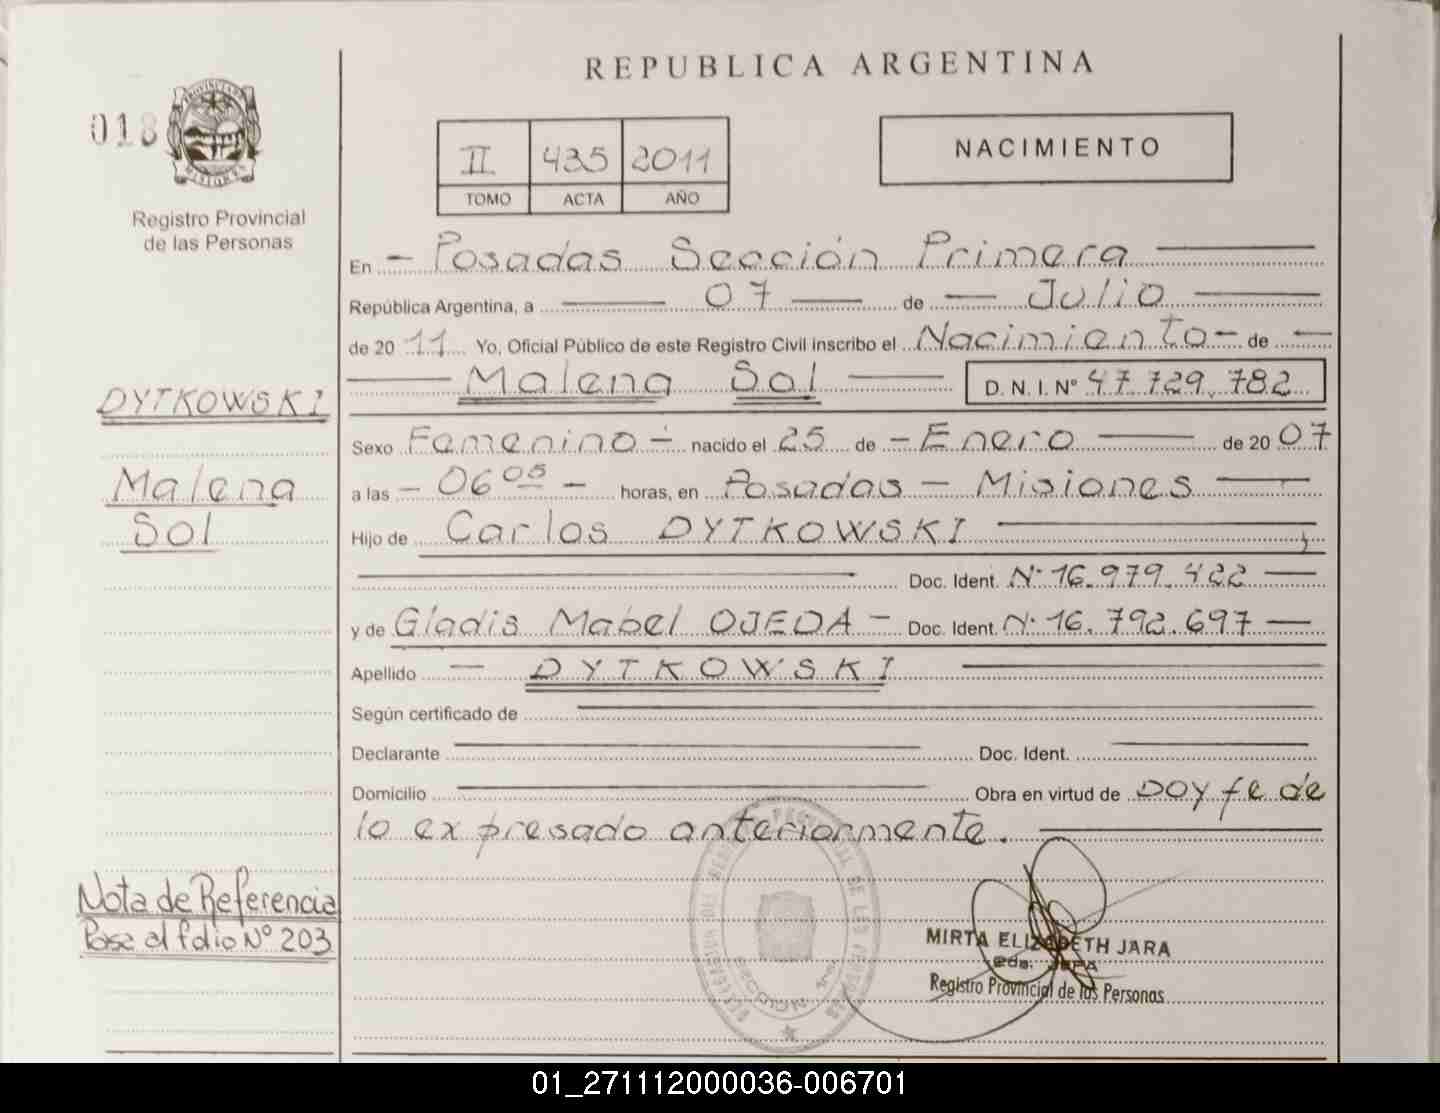 REPUBLICA ARGENTINA
018
Registro Provincial
de las Personas
II 435 2011
TOMO ACTA AÑO
NACIMIENTO
En - Posadas Sección Primera
República Argentina, a 07 de Julio
de 2011 Yo, Oficial Público de este Registro Civil inscribo el Nacimiento - de -
Malena Sol D. N. I. Nº 47.729.782
DYTKOWSKI
Malena
Sol
Sexo Femenino - nacido el 25 de - Enero de 2007
a las - 06 05 - horas, en Posadas - Misiones
Hijo de Carlos DYTKOWSKI ,
Doc. Ident. Nº 16.979.422
y de Gladis Mabel OJEDA - Doc. Ident. Nº 16.792.697
Apellido - DYTKOWSKI
Según certificado de
Declarante Doc. Ident.
Domicilio Obra en virtud de DOY fe de
lo expresado anteriormente.
Nota de Referencia
Pase al folio Nº 203
MIRTA ELIZABETH JARA
JEFA
Registro Provincial de las Personas
01_271112000036-006701